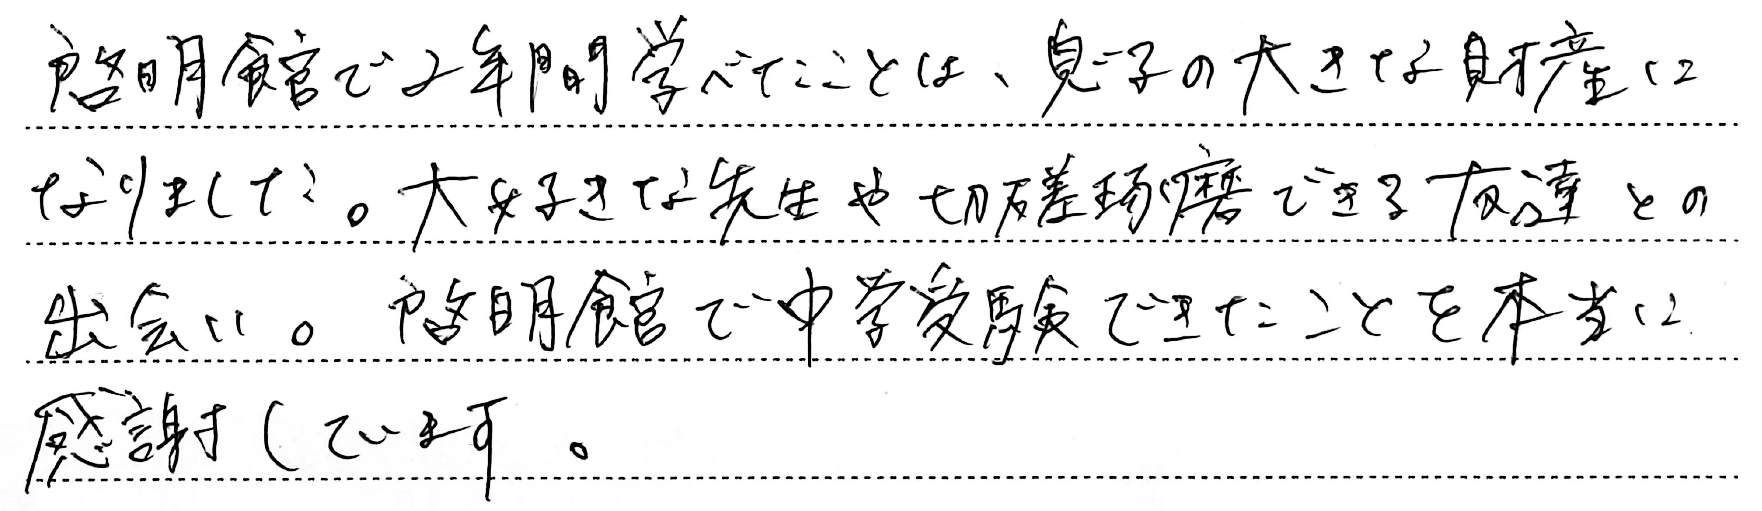 啓明館で2年間学べたことは、息子の大きな財産に
なりました。大好きな先生や切磋琢磨できる友達との
出会い。啓明館で中学受験できたことを本当に
感謝しています。